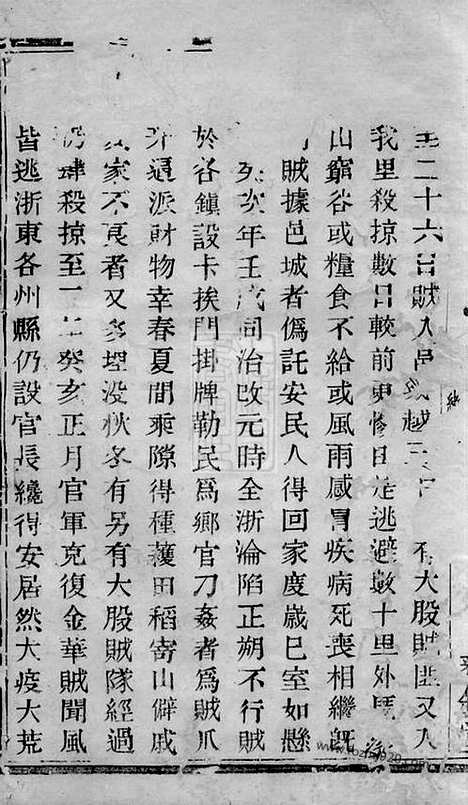 二十六日賊入邑越有大股賊匪又入
我里殺掠數日較前更慘由是逃避數十里外
山窮谷或糧食不給或風雨感冒疾病死喪相繼旣
賊據邑城者僞託安民人得回家度歲已室如懸
次年壬戌同治改元時全浙淪陷正朔不行賊
於各鎭設卡挨門掛牌勒民爲鄕官刀姦者爲賊爪
逼派財物幸春夏間乘隙得種穫田稻寄山僻戚
家不良者又多埋没秋冬有另有大股賊隊經過
肆殺掠至癸亥正月官軍克復金華賊聞風
皆逃浙東各州縣仍設官長纔得安居然大疫大荒